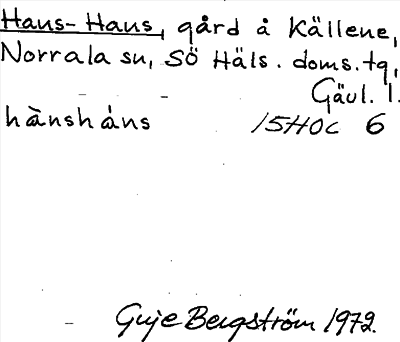 Hans-Hans, gård å Källene,
Norrala sn, SÖ Häls. doms.tg,
Gävl. l.
hànshȧns 15HOc 6
Guje Bergström 1972.